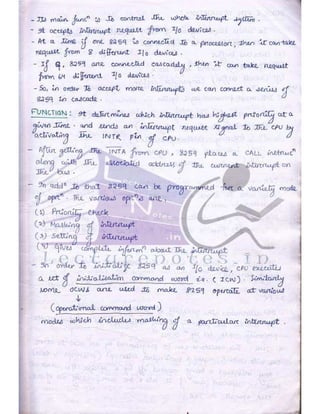 - Its main funcⁿ is to control the whole interrupt system.
- It accepts Interrupt request from I/o devices.
- At a time if one 8259 is connected to a processor, then it can take
request from 8 different I/o devices.
- If 8, 8259 are connected cascadely, then it can take request
from 64 different I/o devices.
- So, in order to accept more interrupts we can connect a series of
8259 in cascade.
FUNCTION: It determines which interrupt has highest priority at a
given time. and sends an interrupt request signal to the CPU by
activating the INTR pin of CPU.
- After getting the INTA from CPU, 8259 places a CALL instrucⁿ
along with the associated address of the current interrupt on
the bus.
- In addⁿ to that 8259 can be programmed for a variety mode
of oprⁿ. The various oprⁿs are,
(1) Priority check
(2) Masking of interrupt
(3) Setting of interrupt
(4) gives complete inform about the interrupt
- In order to initialize 8259 as an I/o device, CPU executes
a set of initialisation command word i.e. (ICW). Similarly
some OCWs are used to make 8259 operate at various
↓
(operational command word)
modes which includes masking of a particular interrupt.
Lecturenotes.in